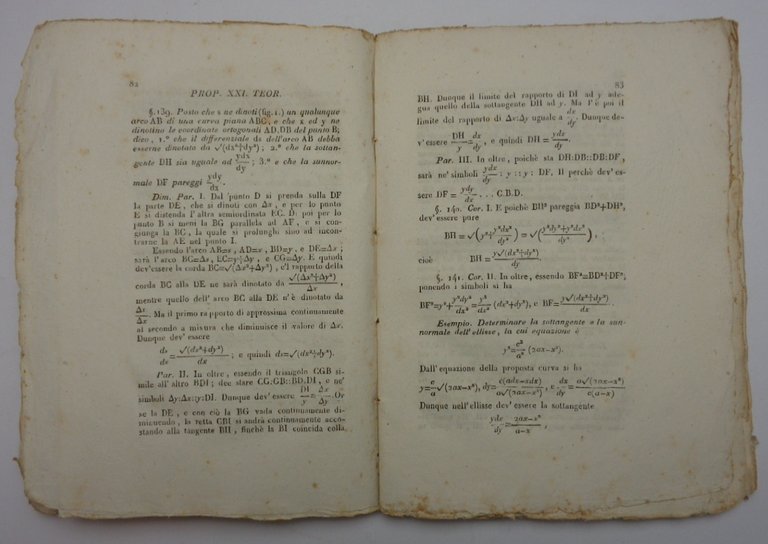 82
PROP. XXI. TEOR.
§. 139. Posto che s ne dinoti (fig. 1.) un qualunque
arco AB di una curva piana ABC, e che x ed y ne
dinotino le coordinate ortogonali AD.DB del punto B;
dico, 1.° che il differenziale ds dell'arco AB debba
esserne dinotato da √(dx²+dy²); 2.° che la sottan-
gente DH sia uguale ad ydx/dy; 3.° e che la sunnor-
male DF pareggi ydy/dx.
Dim. Par. I. Dal punto D si prenda sulla DF
la parte DE, che si dinoti con Δx, e per lo punto
E si distenda l'altra semiordinata EC. D: poi per lo
punto B si meni la BG parallela ad AF, e si con-
giunga la BC, la quale si prolunghi sino ad incon-
trarne la AE nel punto I.
Essendo l'arco AB=s, AD=x, BD=y, e DE=Δx;
sarà l'arco BC=Δs, EC=y+Δy, e CG=Δy. E quindi
dev'essere la corda BC=√(Δx²+Δy²), e'l rapporto della
corda BC alla DE ne sarà dinotato da √(Δx²+Δy²)/Δx,
mentre quello dell' arco BC alla DE n'è dinotato da
Δs/Δx. Ma il primo rapporto di approssima continuamente
al secondo a misura che diminuisce il valore di Δx.
Dunque dev' essere
ds/dx = √(dx²+dy²)/dx; e quindi ds=√(dx²+dy²).
Par. II. In oltre, essendo il triangolo CGB si-
mile all'altro BDI; dee stare CG:GB::BD.DI, e ne'
simboli Δy:Δx::y:DI. Dunque dev'essere DI/y=Δx/Δy. Or
se la DE, e con ciò la BG vada continuamente di-
minuendo, la retta CBI si andrà continuamente acco-
stando alla tangente BH, finchè la BI coincida colla
83
BH. Dunque il limite del rapporto di DI ad y ade-
gua quello della sottangente DH ad y. Ma l'è poi il
limite del rapporto di Δx:Δy uguale a dx/dy. Dunque de-
v'essere DH/y=dx/dy, e quindi DH=ydx/dy.
Par. III. In oltre, poichè sta DH:DB::DB:DF,
sarà ne'simboli ydx/dy : y :: y : DF, Il perchè dev'es-
sere DF=ydy/dx . . . C.B.D.
§. 140. Cor. I. E poichè BH² pareggia BD²+DH²,
dev'essere pure
BH=√(y²+y²dx²/dy²)=√(y²dy²+y²dx²/dy²),
cioè BH=y√(dx²+dy²)/dy.
§. 141. Cor. II. In oltre, essendo BF²=BD²+DF²,
ponendo i simboli si ha
BF²=y²+y²dy²/dx²=y²/dx²(dx²+dy²), e BF=y√(dx²+dy²)/dx.
Esempio. Determinare la sottangente e la sun-
normale dell'ellisse, la cui equazione è
y²=c²/a²(2ax-x²).
Dall'equazione della proposta curva si ha
y=c/a√(2ax-x²), dy=c(adx-xdx)/a√(2ax-x²), e dx/dy=a√(2ax-x²)/c(a-x)
Dunque nell'ellisse dev'essere la sottangente
ydx/dy=2ax-x²/a-x,